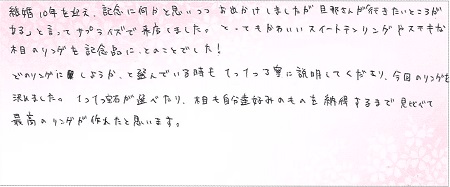 結婚10年を迎え、記念に何かと思いつつ お出かけしましたが 旦那さんが「行きたいところが
ある」と言ってサプライズで来店しました。とってもかわいいスイートテンリングやステキな
木目のリングを記念品に、とのことでした！
どのリングにしようか、と悩んでいる時も 1つ1つ丁寧に説明してくださり、今回のリングを
決めました。1つ1つ宝石が選べたり、木目も自分達好みのものを納得するまで見比べて
最高のリングが作れたと思います。